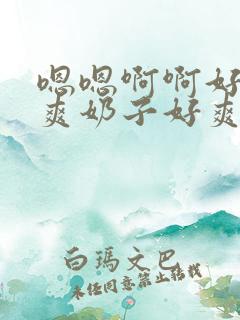 嗯嗯啊啊好
爽奶子好爽
白瑪文巴
未经同意禁止转载